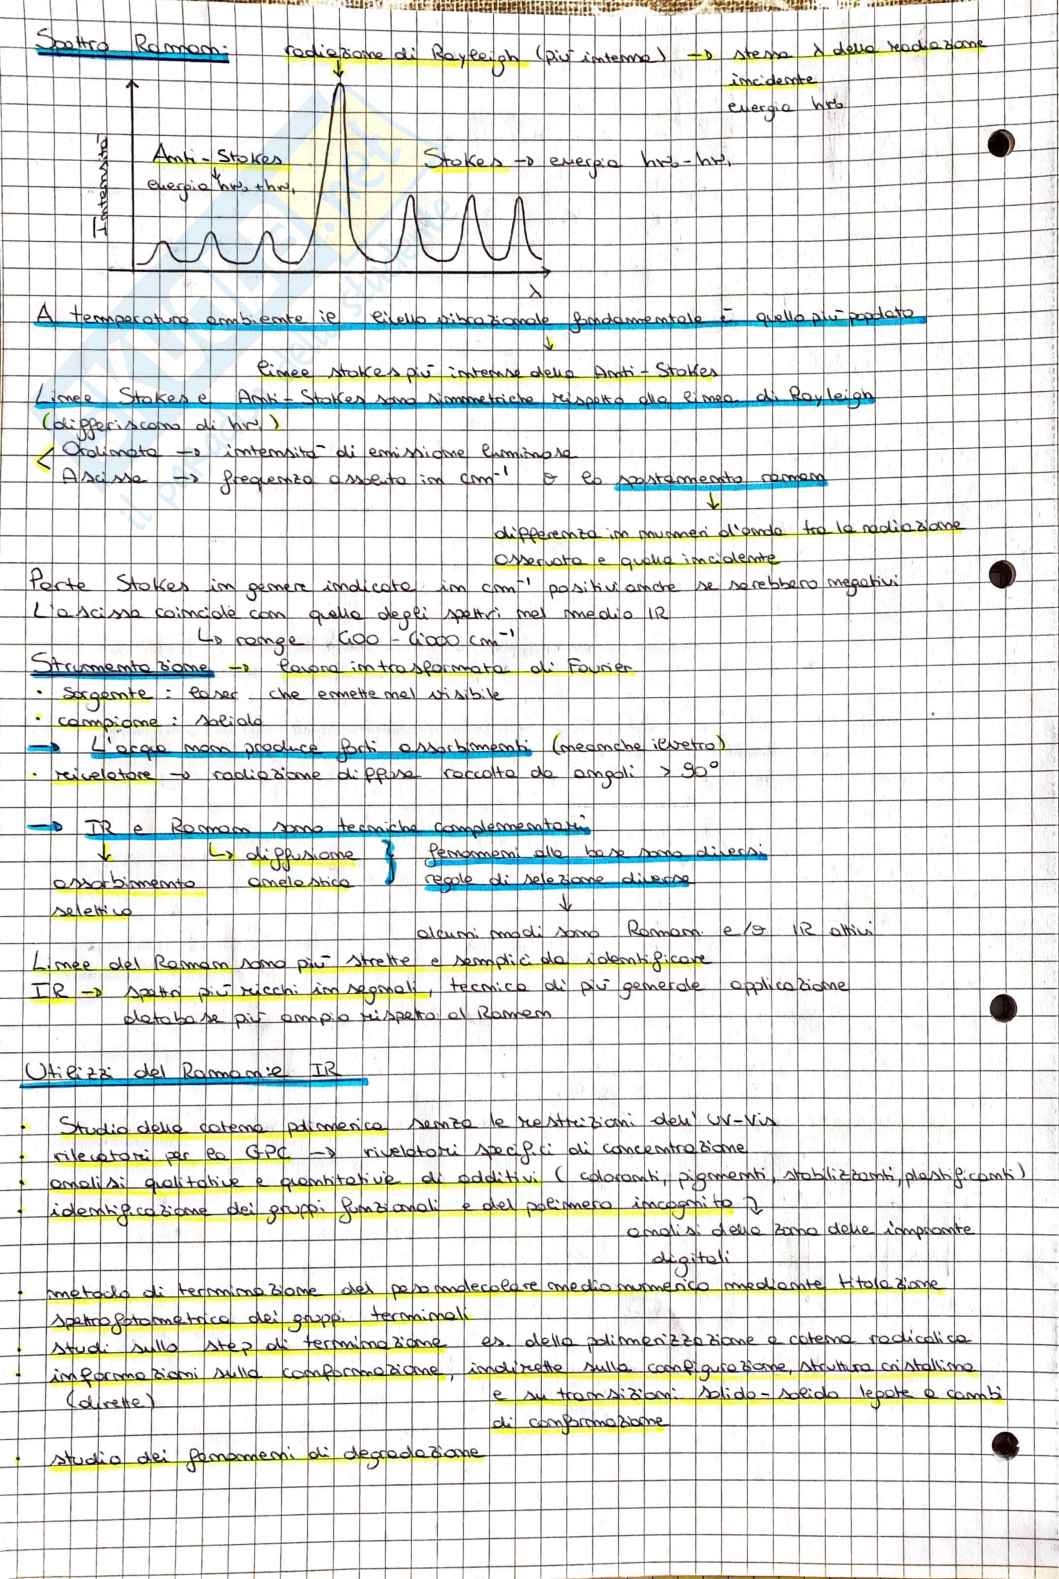 Spettro Raman: radiazione di Rayleigh (più intensa) → stessa λ della radiazione
incidente
energia hν₀
Anti-Stokes
Stokes → energia hν₀-hν₁
energia hν₀+hν₁
Intensità
λ
A temperatura ambiente il livello vibrazionale fondamentale è quello più popolato
↓
linee stokes più intense delle Anti-Stokes
Linee Stokes e Anti-Stokes sono simmetriche rispetto alla linea di Rayleigh
(differiscono di hν₁)
Ordinata → intensità di emissione luminosa
Ascissa → frequenza assoluta in cm⁻¹ o lo spostamento raman
↓
differenza in numeri d'onda tra la radiazione
osservata e quella incidente
Parte Stokes in genere indicata in cm⁻¹ positivi anche se sarebbero negativi
L'ascissa coincide con quella degli spettri nel medio IR
↳ range 400 - 4000 cm⁻¹
Strumentazione → lavora in trasformata di Fourier
• sorgente: laser che emette nel visibile
• campione: solido
→ L'acqua non produce forti assorbimenti (neanche il vetro)
• rivelatore → radiazione diffusa raccolta da angoli > 90°
→ IR e Raman sono tecniche complementari
↓ ↳ diffusione } fenomeni alla base sono diversi
assorbimento anelastica regole di selezione diverse
selettivo ↓
alcuni modi sono Raman e/o IR attivi
Linee del Raman sono più strette e semplici da identificare
IR → spettri più ricchi in segnali, tecnica di più generale applicazione
database più ampio rispetto al Raman
Utilizzi del Raman e IR
• Studio della catena polimerica senza le restrizioni dell'UV-Vis
• rilevatori per la GPC → rivelatori specifici di concentrazione
• analisi qualitative e quantitative di additivi (coloranti, pigmenti, stabilizzanti, plastificanti)
• identificazione dei gruppi funzionali e del polimero incognito
analisi della zona delle impronte
digitali
• metodo di terminazione del peso molecolare medio numerico mediante titolazione
spettrofotometrica dei gruppi terminali
• studi sullo step di terminazione es. della polimerizzazione a catena radicalica
• informazioni sulla conformazione, indirette sulla configurazione, struttura cristallina
(dirette) e su transizioni solido-solido legate a cambi
di conformazione
• studio dei fenomeni di degradazione